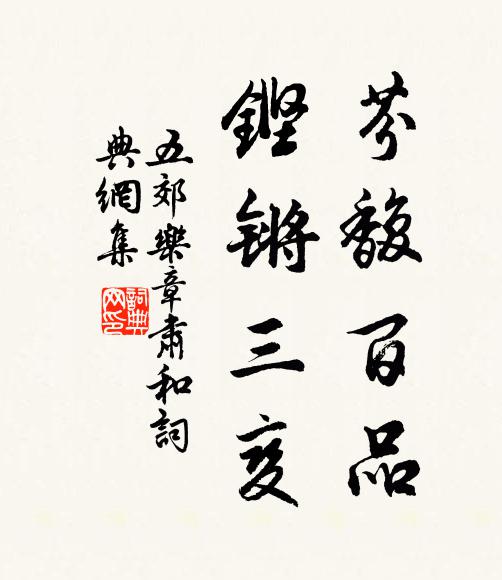 芬馥百品
鏗锵三变
五郊樂章肅和詞
典網集
詞典网印